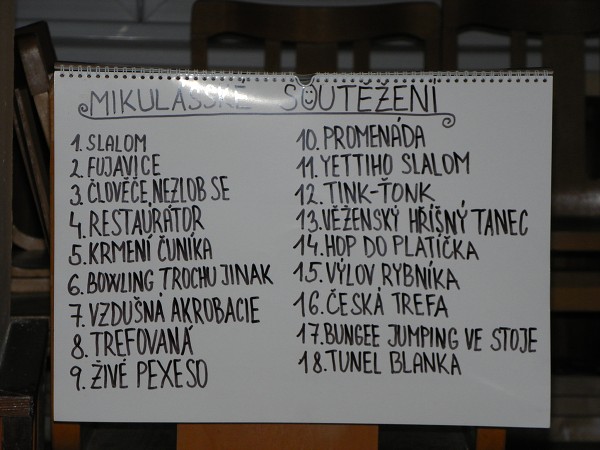 MIKULÁŠSKÉ SOUTĚŽENÍ
1. SLALOM
2. FUJAVICE
3. ČLOVĚČE, NEZLOB SE
4. RESTAURÁTOR
5. KRMENÍ ČUNÍKA
6. BOWLING TROCHU JINAK
7. VZDUŠNÁ AKROBACIE
8. TREFOVANÁ
9. ŽIVÉ PEXESO
10. PROMENÁDA
11. YETTIHO SLALOM
12. TINK-ŤONK
13. VĚŽENSKÝ HŘÍŠNÝ TANEC
14. HOP DO PLATÍČKA
15. VÝLOV RYBNÍKA
16. ČESKÁ TREFA
17. BUNGEE JUMPING VE STOJE
18. TUNEL BLANKA